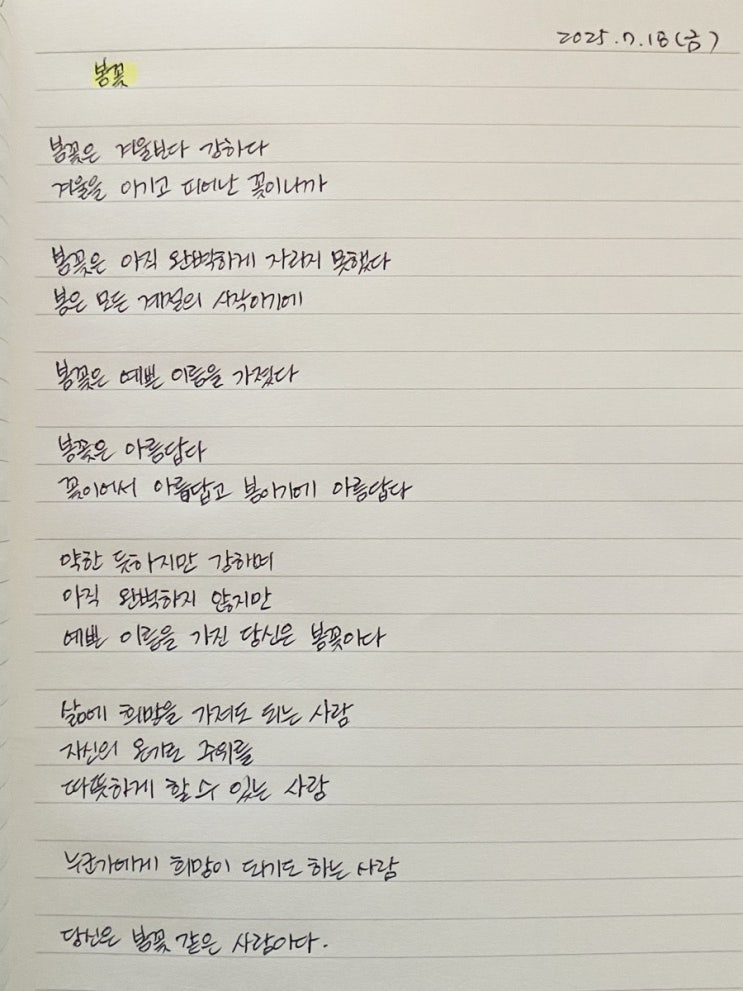 2025.7.18(금)
봄꽃
봄꽃은 겨울보다 강하다
겨울을 이기고 피어난 꽃이니까
봄꽃은 아직 완벽하게 자라지 못했다
봄은 모든 계절의 시작이기에
봄꽃은 예쁜 이름을 가졌다
봄꽃은 아름답다
꽃이어서 아름답고 봄이기에 아름답다
약한 듯하지만 강하며
아직 완벽하지 않지만
예쁜 이름을 가진 당신은 봄꽃이다
삶에 희망을 가져도 되는 사람
자신의 온기로 주위를
따뜻하게 할 수 있는 사람
누군가에게 희망이 되기도 하는 사람
당신은 봄꽃 같은 사람이다.